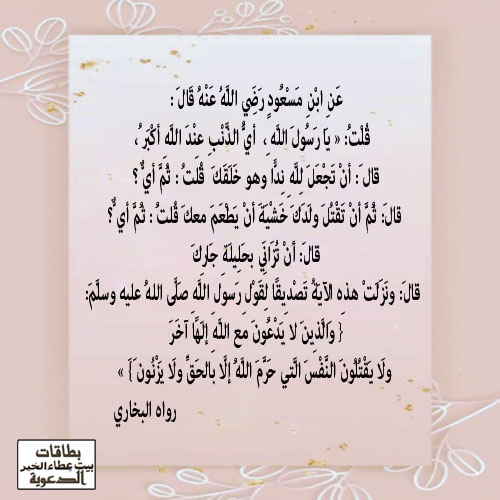 عَنِ ابْنِ مَسْعُودٍ رَضِيَ اللَّهُ عَنْهُ قَالَ :
قُلْتُ: « يا رَسُولَ اللَّهِ ، أيُّ الذَّنْبِ عِنْدَ اللَّه أَكْبَرُ ،
قالَ : أنْ تَجْعَلَ لِلَّهِ نِدًّا وهو خَلَقَكَ قُلتُ : ثُمَّ أيٌّ ؟
قالَ: ثُمَّ أنْ تَقْتُلَ ولَدَكَ خَشْيَةَ أنْ يَطْعَمَ معكَ قُلتُ : ثُمَّ أيٌّ ؟
قالَ: أنْ تُزَانِيَ بحَلِيلَةِ جَارِكَ
قالَ: ونَزَلَتْ هذِه الآيَةُ تَصْدِيقًا لِقَوْلِ رَسولِ اللَّهِ صَلَّى اللهُ عليه وسلَّمَ:
{ وَالَّذِينَ لا يَدْعُونَ مَع اللَّهِ إلَهًا آخَرَ
ولَا يَقْتُلُونَ النَّفْسَ الَّتي حَرَّمَ اللَّهُ إلَّا بالحَقِّ ولَا يَزْنُونَ }»
رواه البخاري
بطاقات
بيت عطاء الخير
الدعوية